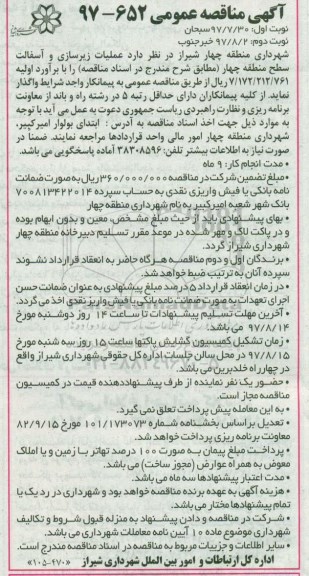 آگهی مناقصه عمومی ۶۵۲-۹۷
نوبت اول: ۹۷/۷/۳۰ سبحان
نوبت دوم: ۹۷/۸/۲ خبرجنوب
شهرداری منطقه چهار شیراز در نظر دارد عملیات زیرسازی و آسفالت
سطح منطقه چهار (مطابق شرح مندرج در اسناد مناقصه) را با برآورد اولیه
۷/۱۷۲/۲۱۲/۷۶۱ ریال از طریق مناقصه عمومی به پیمانکار واجد شرایط واگذار
نماید. از کلیه پیمانکاران دارای حداقل رتبه ۵ در رشته راه و باند از معاونت
برنامه ریزی و نظارت راهبردی ریاست جمهوری دعوت به عمل می آید با توجه
به موارد ذیل جهت اخذ اسناد مناقصه به آدرس : ابتدای بولوار امیرکبیر،
شهرداری منطقه چهار امور مالی واحد قراردادها مراجعه نمایند. ضمنا در
صورت نیاز به اطلاعات بیشتر تلفن: ۳۸۳۰۸۵۹۶ آماده پاسخگویی می باشد.
• مدت انجام کار: ۹ ماه
• مبلغ تضمین شرکت در مناقصه ۳۶۰/۰۰۰/۰۰۰ ریال به صورت ضمانت
نامه بانکی یا فیش واریزی نقدی به حساب سپرده ۷۰۰۸۱۳۴۲۲۰۱۴
بانک شهر شعبه امیرکبیر به نام شهرداری منطقه چهار
• بهای پیشنهادی باید از حیث مبلغ مشخص، معین و بدون ابهام بوده
و در پاکت لاک و مهر شده در موعد مقرر تسلیم دبیرخانه منطقه چهار
شهرداری شیراز گردد.
• برندگان اول و دوم مناقصه هرگاه حاضر به انعقاد قرارداد نشوند
سپرده آنان به ترتیب ضبط خواهد شد.
• در زمان انعقاد قرارداد ۵ درصد مبلغ پیشنهادی به عنوان ضمانت حسن
اجرای تعهدات به صورت ضمانت نامه بانکی یا فیش واریز نقدی اخذ می گردد.
• آخرین مهلت تسلیم پیشنهادات تا ساعت ۱۴ روز دوشنبه مورخ
۹۷/۸/۱۴ می باشد.
• زمان تشکیل کمیسیون گشایش پاکتها ساعت ۱۵ روز سه شنبه مورخ
۹۷/۸/۱۵ در محل سالن جلسات اداره کل حقوقی شهرداری شیراز واقع
در چهارراه خلدبرین می باشد.
• حضور یک نفر نماینده از طرف پیشنهاددهنده قیمت در کمیسیون
مناقصه مجاز است.
• به این معامله پیش پرداخت تعلق نمی گیرد.
• تعدیل براساس بخشنامه شماره ۱۰۱/۱۷۳۰۷۳ مورخ ۸۲/۹/۱۵
معاونت برنامه ریزی پرداخت خواهد شد.
• پرداخت مبلغ پیمان به صورت ۱۰۰ درصد تهاتر با زمین و یا املاک
معوض به همراه عوارض (مجوز ساخت) می باشد.
• مدت اعتبار پیشنهادها سه ماه می باشد.
• هزینه آگهی به عهده برنده مناقصه خواهد بود و شهرداری در رد یک یا
تمام پیشنهادها مختار می باشد.
• شرکت در مناقصه و دادن پیشنهاد به منزله قبول شروط و تکالیف
شهرداری موضوع ماده ۱۰ آیین نامه معاملات شهرداری می باشد.
• سایر اطلاعات و جزییات مربوط به مناقصه در اسناد مناقصه مندرج است.
اداره کل ارتباطات و امور بین الملل شهرداری شیراز «۱۰۵-۴۷۰»